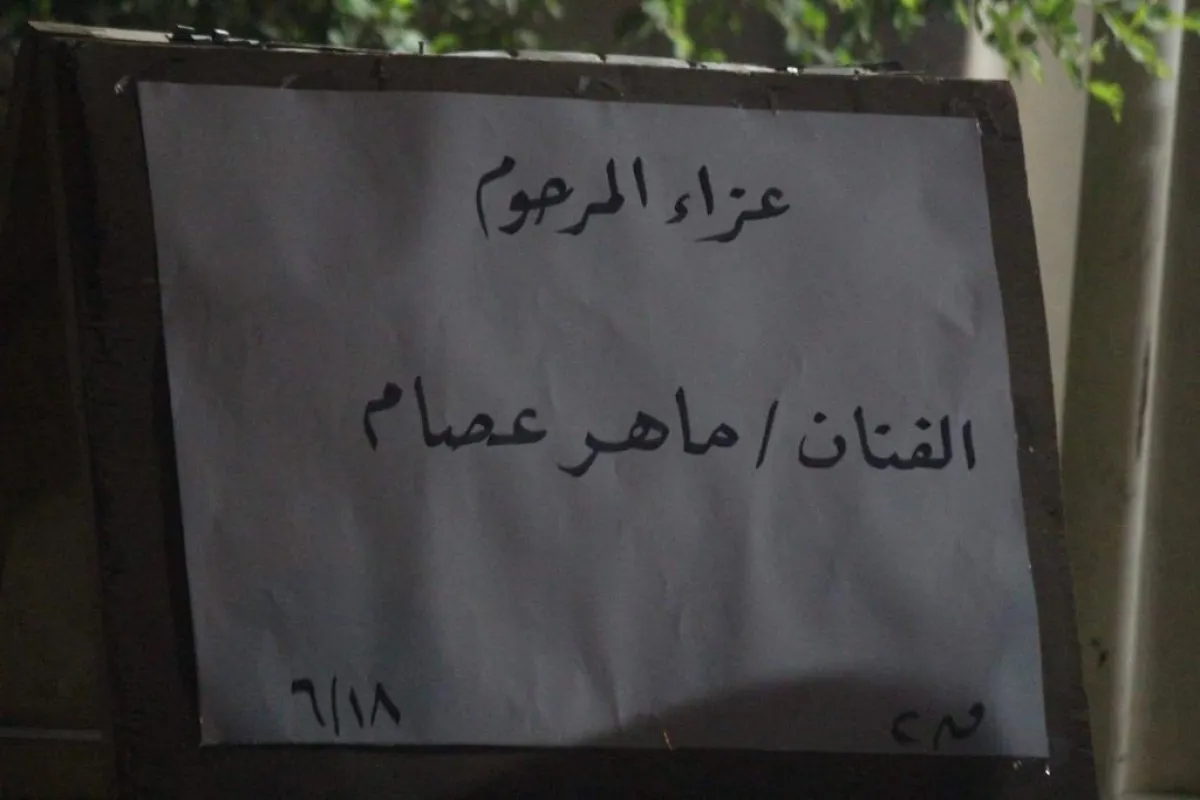 عزاء المرحوم
الفنان / ماهر عصام
٦/١٨